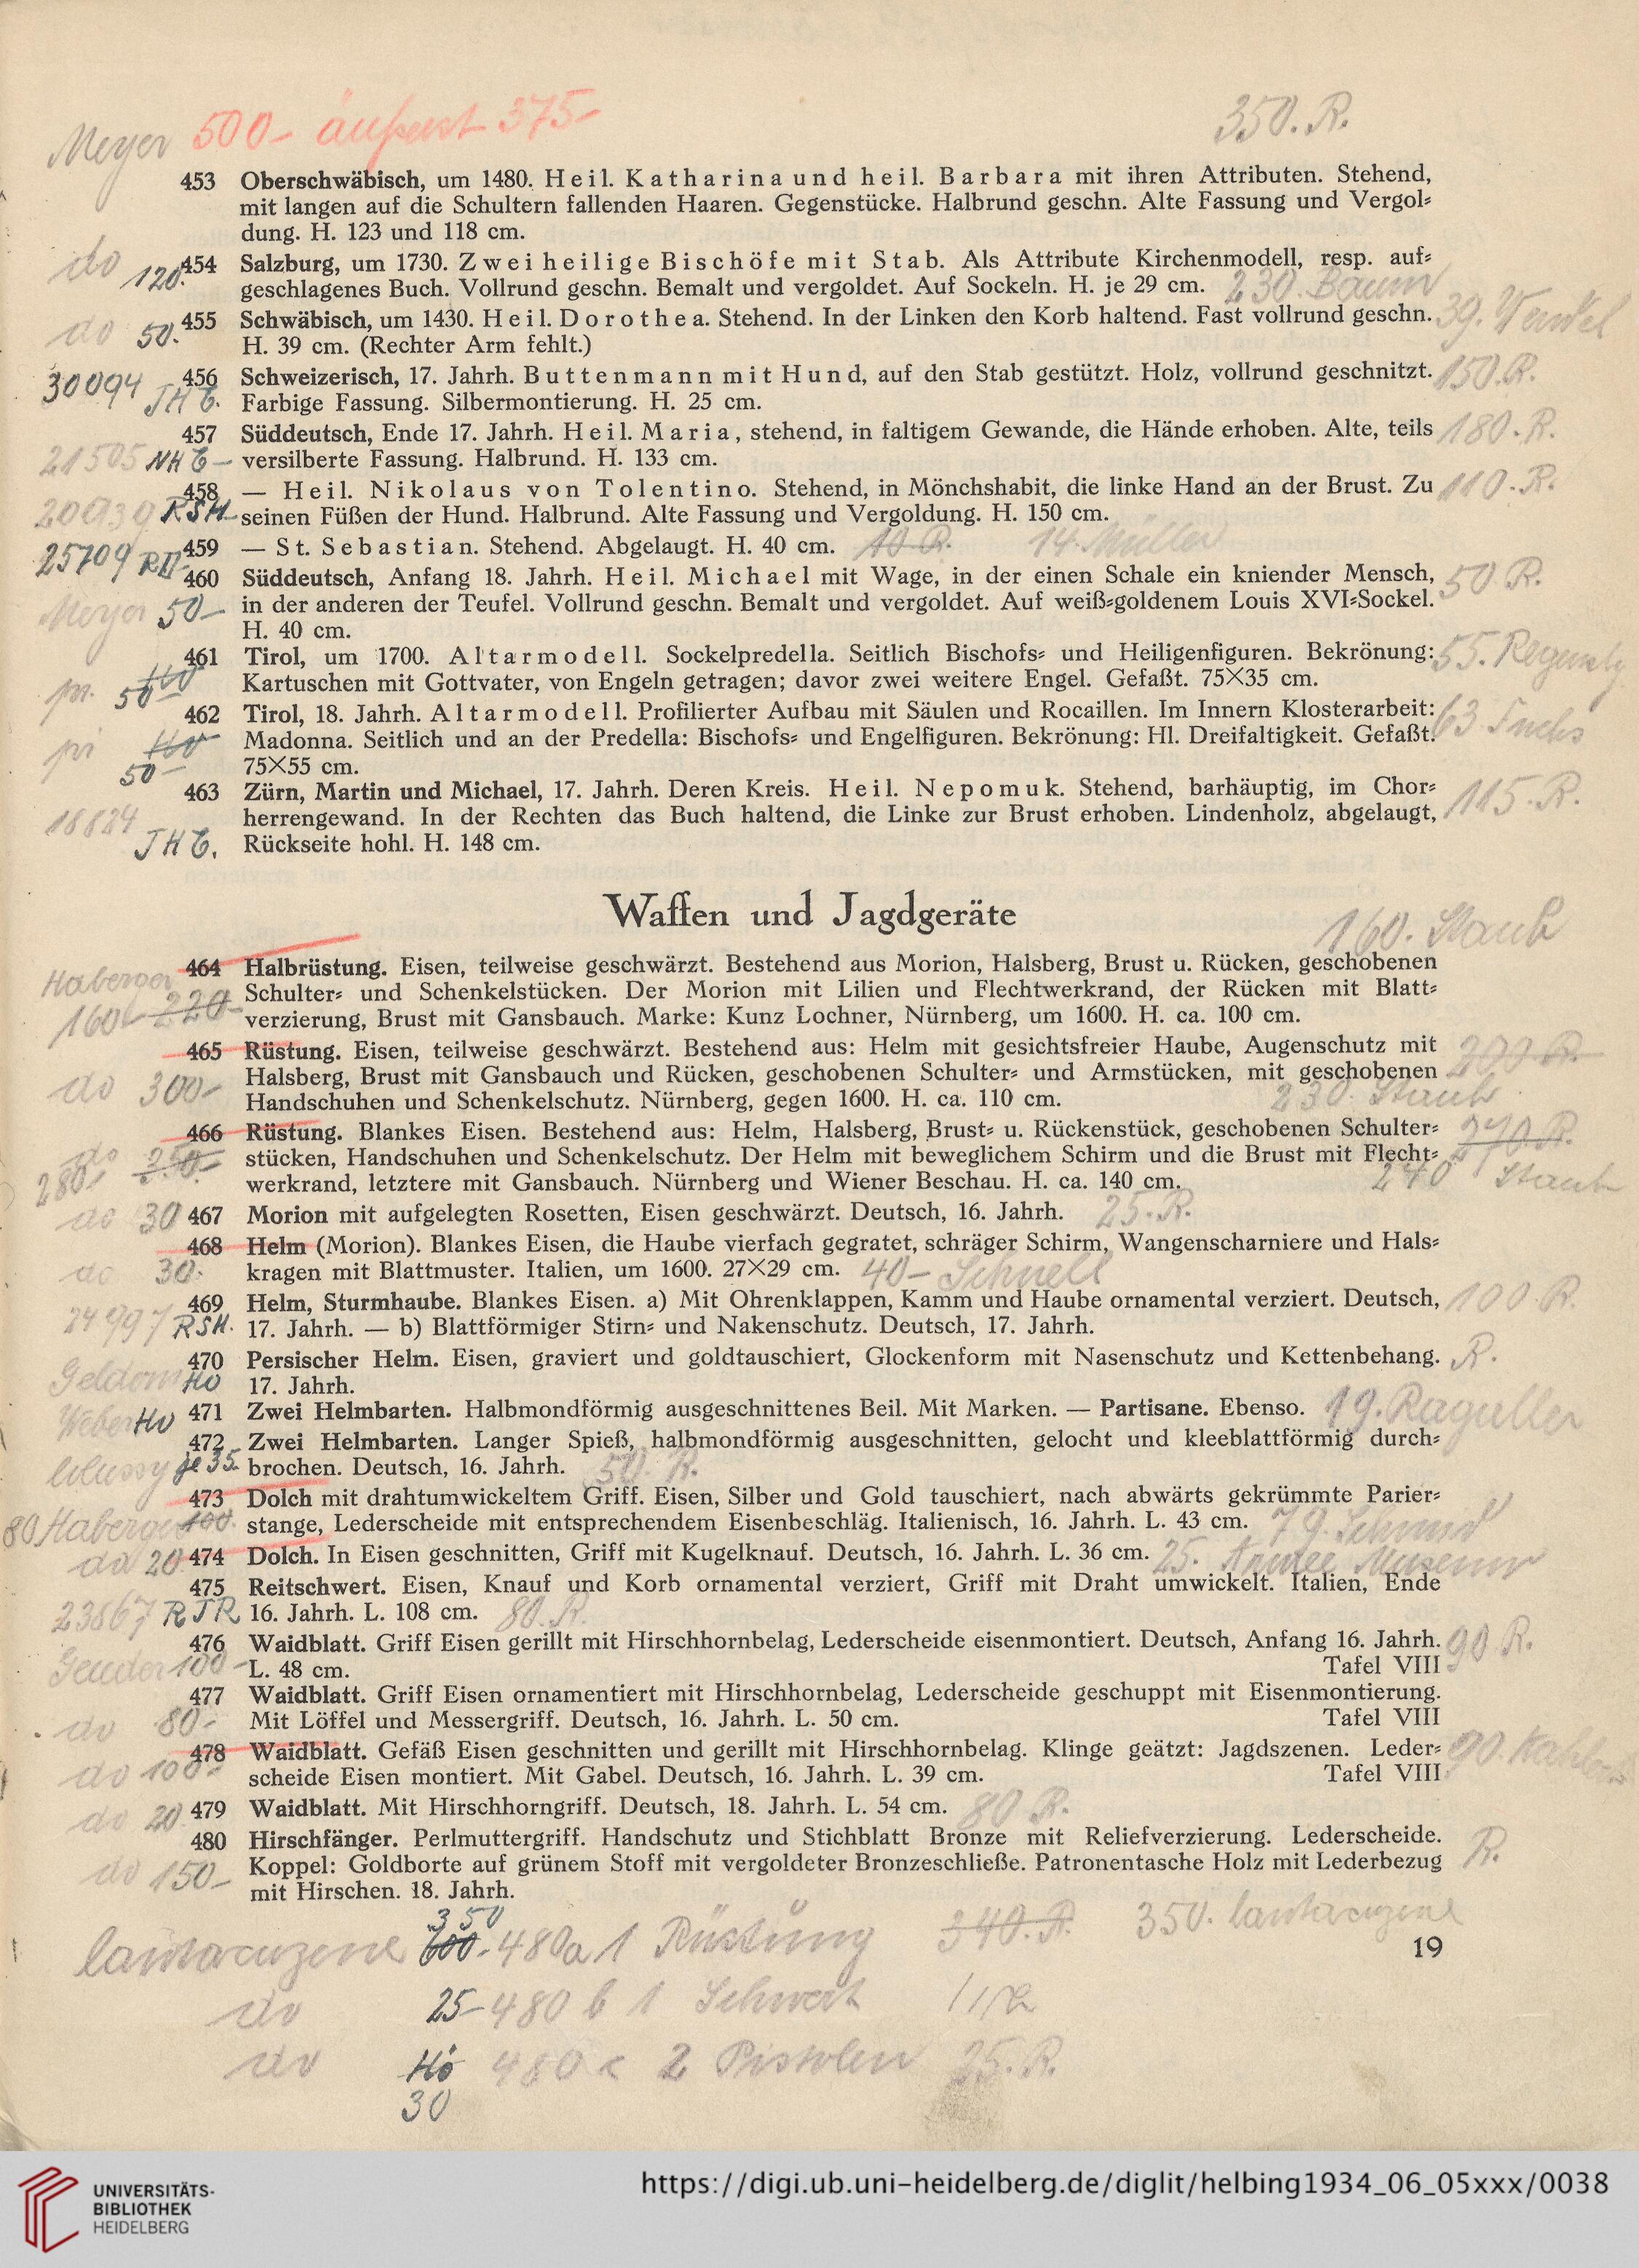 Meyer 500- äußerst 375- 350. R.
453 Oberschwäbisch, um 1480. Heil. Katharina und heil. Barbara mit ihren Attributen. Stehend,
mit langen auf die Schultern fallenden Haaren. Gegenstücke. Halbrund geschn. Alte Fassung und Vergol=
dung. H. 123 und 118 cm.
do 120.- 454 Salzburg, um 1730. Zwei heilige Bischöfe mit Stab. Als Attribute Kirchenmodell, resp. auf=
geschlagenes Buch. Vollrund geschn. Bemalt und vergoldet. Auf Sockeln. H. je 29 cm. 230. Baum
do 50.- 455 Schwäbisch, um 1430. Heil. Dorothea. Stehend. In der Linken den Korb haltend. Fast vollrund geschn. 39.
H. 39 cm. (Rechter Arm fehlt.)
30094 456 Schweizerisch, 17. Jahrh. Buttenmann mit Hund, auf den Stab gestützt. Holz, vollrund geschnitzt. 150. R.
Farbige Fassung. Silbermontierung. H. 25 cm.
457 Süddeutsch, Ende 17. Jahrh. Heil. Maria, stehend, in faltigem Gewande, die Hände erhoben. Alte, teils 180.- R.
21505 versilberte Fassung. Halbrund. H. 133 cm.
458 — Heil. Nikolaus von Tolentino. Stehend, in Mönchshabit, die linke Hand an der Brust. Zu 110.- R.
RSH- seinen Füßen der Hund. Halbrund. Alte Fassung und Vergoldung. H. 150 cm.
25709 459 — St. Sebastian. Stehend. Abgelaugt. H. 40 cm. 10 R. 14. Müller
460 Süddeutsch, Anfang 18. Jahrh. Heil. Michael mit Wage, in der einen Schale ein kniender Mensch, 50 R.
Meyer 50- in der anderen der Teufel. Vollrund geschn. Bemalt und vergoldet. Auf weiß=goldenem Louis XVI=Sockel.
H. 40 cm.
461 Tirol, um 1700. Altarmodell. Sockelpredella. Seitlich Bischofs= und Heiligenfiguren. Bekrönung: 55.
50- Kartuschen mit Gottvater, von Engeln getragen; davor zwei weitere Engel. Gefaßt. 75×35 cm.
462 Tirol, 18. Jahrh. Altarmodell. Profilierter Aufbau mit Säulen und Rocaillen. Im Innern Klosterarbeit: 63 Fuchs
Madonna. Seitlich und an der Predella: Bischofs= und Engelfiguren. Bekrönung: Hl. Dreifaltigkeit. Gefaßt.
50- 75×55 cm.
463 Zürn, Martin und Michael, 17. Jahrh. Deren Kreis. Heil. Nepomuk. Stehend, barhäuptig, im Chor= 115.- R.
herrengewand. In der Rechten das Buch haltend, die Linke zur Brust erhoben. Lindenholz, abgelaugt,
Rückseite hohl. H. 148 cm.
Waffen und Jagdgeräte
160. Staub
464 Halbrüstung. Eisen, teilweise geschwärzt. Bestehend aus Morion, Halsberg, Brust u. Rücken, geschobenen
220- Schulter= und Schenkelstücken. Der Morion mit Lilien und Flechtwerkrand, der Rücken mit Blatt=
160- verzierung, Brust mit Gansbauch. Marke: Kunz Lochner, Nürnberg, um 1600. H. ca. 100 cm.
465 Rüstung. Eisen, teilweise geschwärzt. Bestehend aus: Helm mit gesichtsfreier Haube, Augenschutz mit
do 300- Halsberg, Brust mit Gansbauch und Rücken, geschobenen Schulter= und Armstücken, mit geschobenen
Handschuhen und Schenkelschutz. Nürnberg, gegen 1600. H. ca. 110 cm. 230. Staub
466 Rüstung. Blankes Eisen. Bestehend aus: Helm, Halsberg, Brust= u. Rückenstück, geschobenen Schulter=
do stücken, Handschuhen und Schenkelschutz. Der Helm mit beweglichem Schirm und die Brust mit Flecht=
280.- werkrand, letztere mit Gansbauch. Nürnberg und Wiener Beschau. H. ca. 140 cm. 240 Staub
do 30 467 Morion mit aufgelegten Rosetten, Eisen geschwärzt. Deutsch, 16. Jahrh. 25.- R.
468 Helm (Morion). Blankes Eisen, die Haube vierfach gegratet, schräger Schirm, Wangenscharniere und Hals=
do 30.- kragen mit Blattmuster. Italien, um 1600. 27×29 cm. 40- Schnell
469 Helm, Sturmhaube. Blankes Eisen. a) Mit Ohrenklappen, Kamm und Haube ornamental verziert. Deutsch, 100 R.
RSH. 17. Jahrh. — b) Blattförmiger Stirn= und Nakenschutz. Deutsch, 17. Jahrh.
470 Persischer Helm. Eisen, graviert und goldtauschiert, Glockenform mit Nasenschutz und Kettenbehang. R.
17. Jahrh.
Weber 471 Zwei Helmbarten. Halbmondförmig ausgeschnittenes Beil. Mit Marken. — Partisane. Ebenso. 19. Raguller
472 Zwei Helmbarten. Langer Spieß, halbmondförmig ausgeschnitten, gelocht und kleeblattförmig durch=
je 35- brochen. Deutsch, 16. Jahrh. 50. R.
473 Dolch mit drahtumwickeltem Griff. Eisen, Silber und Gold tauschiert, nach abwärts gekrümmte Parier=
80 100. stange, Lederscheide mit entsprechendem Eisenbeschläg. Italienisch, 16. Jahrh. L. 43 cm. 79. Schmid
do 20 474 Dolch. In Eisen geschnitten, Griff mit Kugelknauf. Deutsch, 16. Jahrh. L. 36 cm. 25. Armee Museum
475 Reitschwert. Eisen, Knauf und Korb ornamental verziert, Griff mit Draht umwickelt. Italien, Ende
23867 16. Jahrh. L. 108 cm. 80. R.
476 Waidblatt. Griff Eisen gerillt mit Hirschhornbelag, Lederscheide eisenmontiert. Deutsch, Anfang 16. Jahrh. 90 R.
100- L. 48 cm. Tafel VIII
477 Waidblatt. Griff Eisen ornamentiert mit Hirschhornbelag, Lederscheide geschuppt mit Eisenmontierung.
do 80.- Mit Löffel und Messergriff. Deutsch, 16. Jahrh. L. 50 cm. Tafel VIII
478 Waidblatt. Gefäß Eisen geschnitten und gerillt mit Hirschhornbelag. Klinge geätzt: Jagdszenen. Leder= 90.
do 100.- scheide Eisen montiert. Mit Gabel. Deutsch, 16. Jahrh. L. 39 cm. Tafel VIII
do 20 479 Waidblatt. Mit Hirschhorngriff. Deutsch, 18. Jahrh. L. 54 cm. 80 R.
480 Hirschfänger. Perlmuttergriff. Handschutz und Stichblatt Bronze mit Reliefverzierung. Lederscheide. R.
do 150- Koppel: Goldborte auf grünem Stoff mit vergoldeter Bronzeschließe. Patronentasche Holz mit Lederbezug
mit Hirschen. 18. Jahrh.
350
600.- 480a 1 Rüstung 340. R. 350.
19
do 25- 480 b 1 Schwert
do 480 c 2 Pistolen 25. R.
30
UNIVERSITÄTS-
BIBLIOTHEK
HEIDELBERG
https://digi.ub.uni-heidelberg.de/diglit/helbing1934_06_05xxx/0038